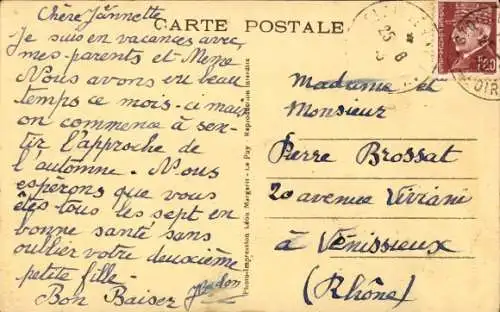 Chère Jeannette
CARTE POSTALE
Je suis en vacances avec
mes parents et Mene
Nous avons eu beau
temps ce mois-ci mais
on commence à sen-
tir l'approche de
l'automne. Nous
espérons que vous
êtes tous les sept en
bonne santé sans
oublier votre deuxième
petite fille -
Bon Baiser
Photo-Impression Léon Margerit - Le Puy Reproduction interdite
25 8
1F20
Madame et
Monsieur
Pierre Brossat
20 avenue Viviani
à Vénissieux
(Rhône)